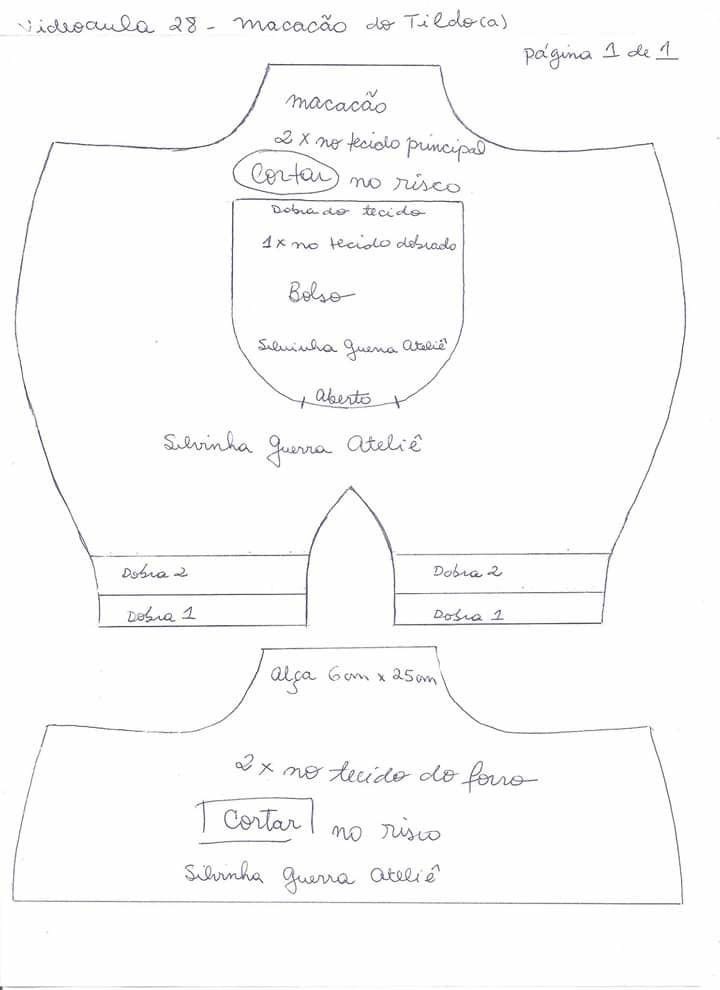 Videoaula 28 - Macacão do Tildo(a)
página 1 de 1
macacão
2 x no tecido principal
Cortar no risco
Dobra do tecido
1x no tecido dobrado
Bolso
Silvinha Guerra Ateliê
Aberto
Silvinha Guerra Ateliê
Dobra 2
Dobra 2
Dobra 1
Dobra 1
Alça 6cm x 25cm
2 x no tecido do forro
Cortar no risco
Silvinha Guerra Ateliê